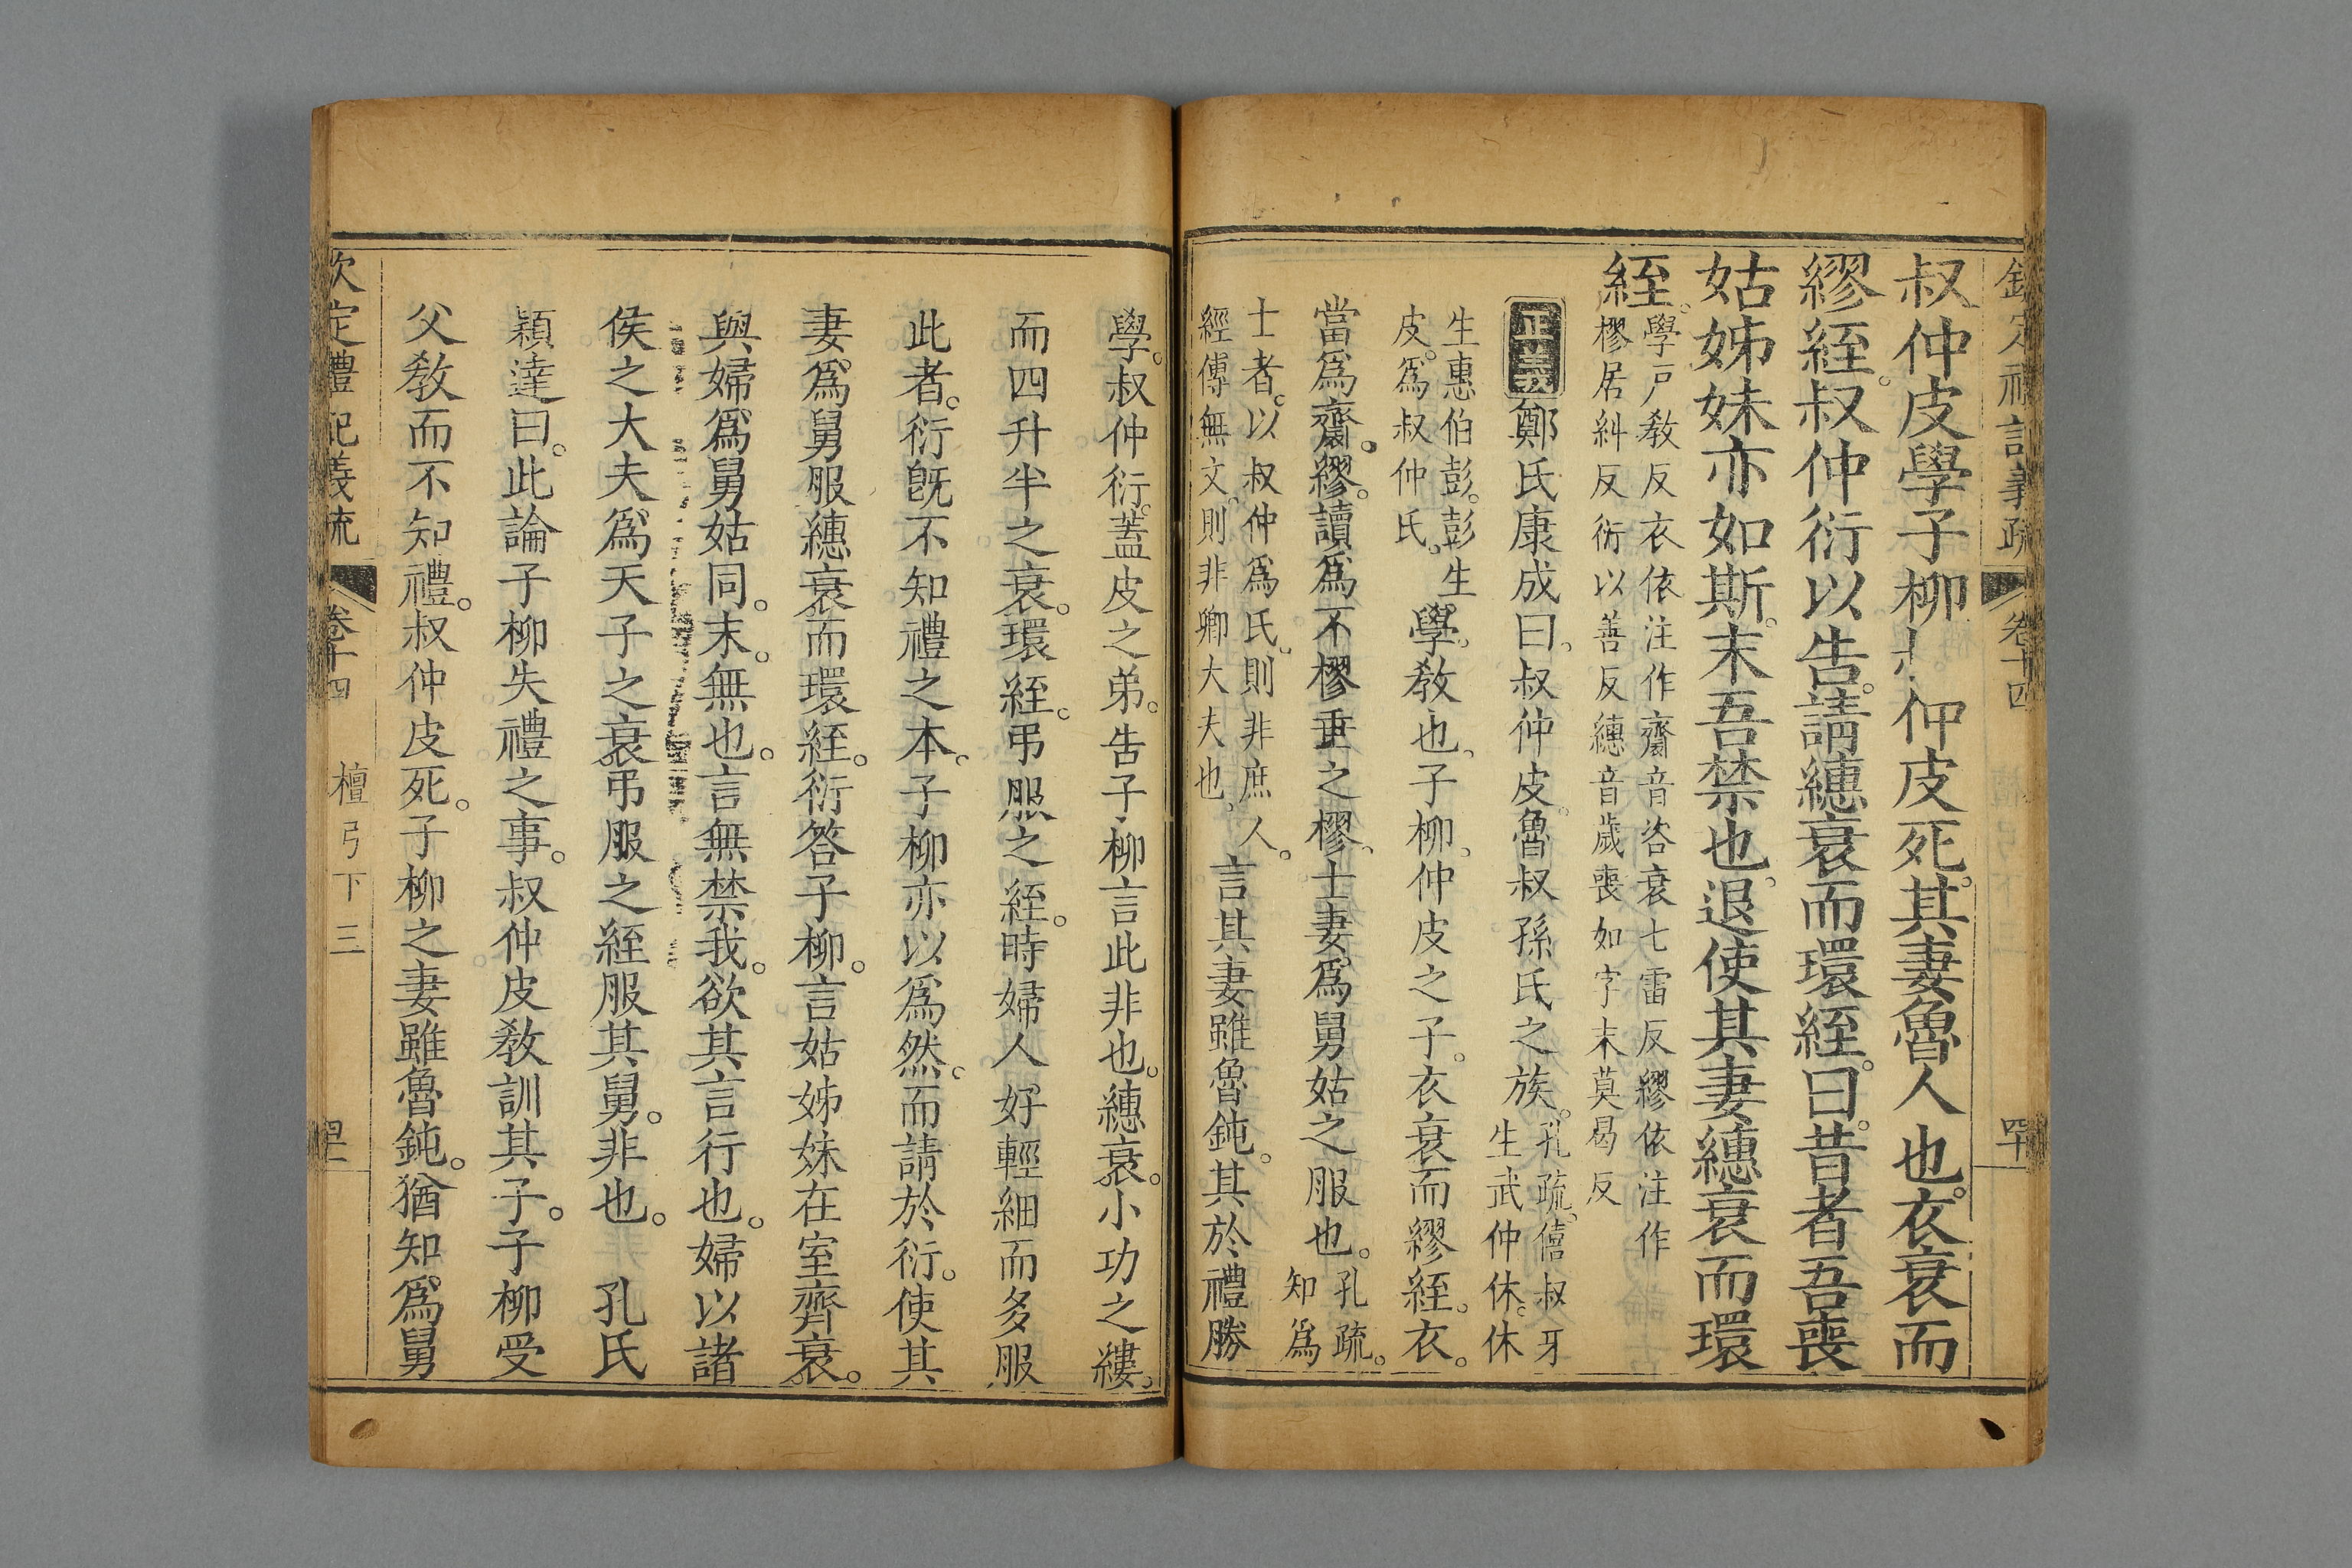 欽定禮記義疏 卷十四
叔仲皮學子柳 仲皮死。其妻魯人也。衣衰而
繆絰。叔仲衍以告。請繐衰而環絰。曰。昔者吾喪
姑姊妹亦如斯。末吾禁也。退使其妻繐衰而環
絰。
學戶教反衣依注作齋音咨衰七雷反繆依注作
樛居糾反衍以善反繐音歲喪如字末莫曷反
正義 鄭氏康成曰。叔仲皮。魯叔孫氏之族。
孔疏。僖叔牙
生武仲休。休
生惠伯彭。彭生
皮。爲叔仲氏。
學。教也。子柳。仲皮之子。衣衰而繆絰。衣。
當爲齋。繆。讀爲不樛垂之樛。士妻。爲舅姑之服也。
孔疏。
知爲
士者。以叔仲爲氏。則非庶人。
經傳無文。則非卿大夫也。
言其妻雖魯鈍。其於禮勝
學。叔仲衍。蓋皮之弟。告子柳言此非也。繐衰。小功之縷。
而四升半之衰。環絰。弔服之絰。時婦人好輕細而多服
此者。衍旣不知禮之本。子柳亦以爲然。而請於衍。使其
妻。爲舅服繐衰而環絰。衍答子柳。言姑姊妹在室齊衰。
與婦爲舅姑同。末。無也。言無禁我。欲其言行也。婦以諸
侯之大夫。爲天子之衰。弔服之絰服其舅。非也。 孔氏
穎達曰。此論子柳失禮之事。叔仲皮教訓其子。子柳受
父教而不知禮。叔仲皮死。子柳之妻雖魯鈍。猶知爲舅
欽定禮記義疏 卷十四 檀弓下三